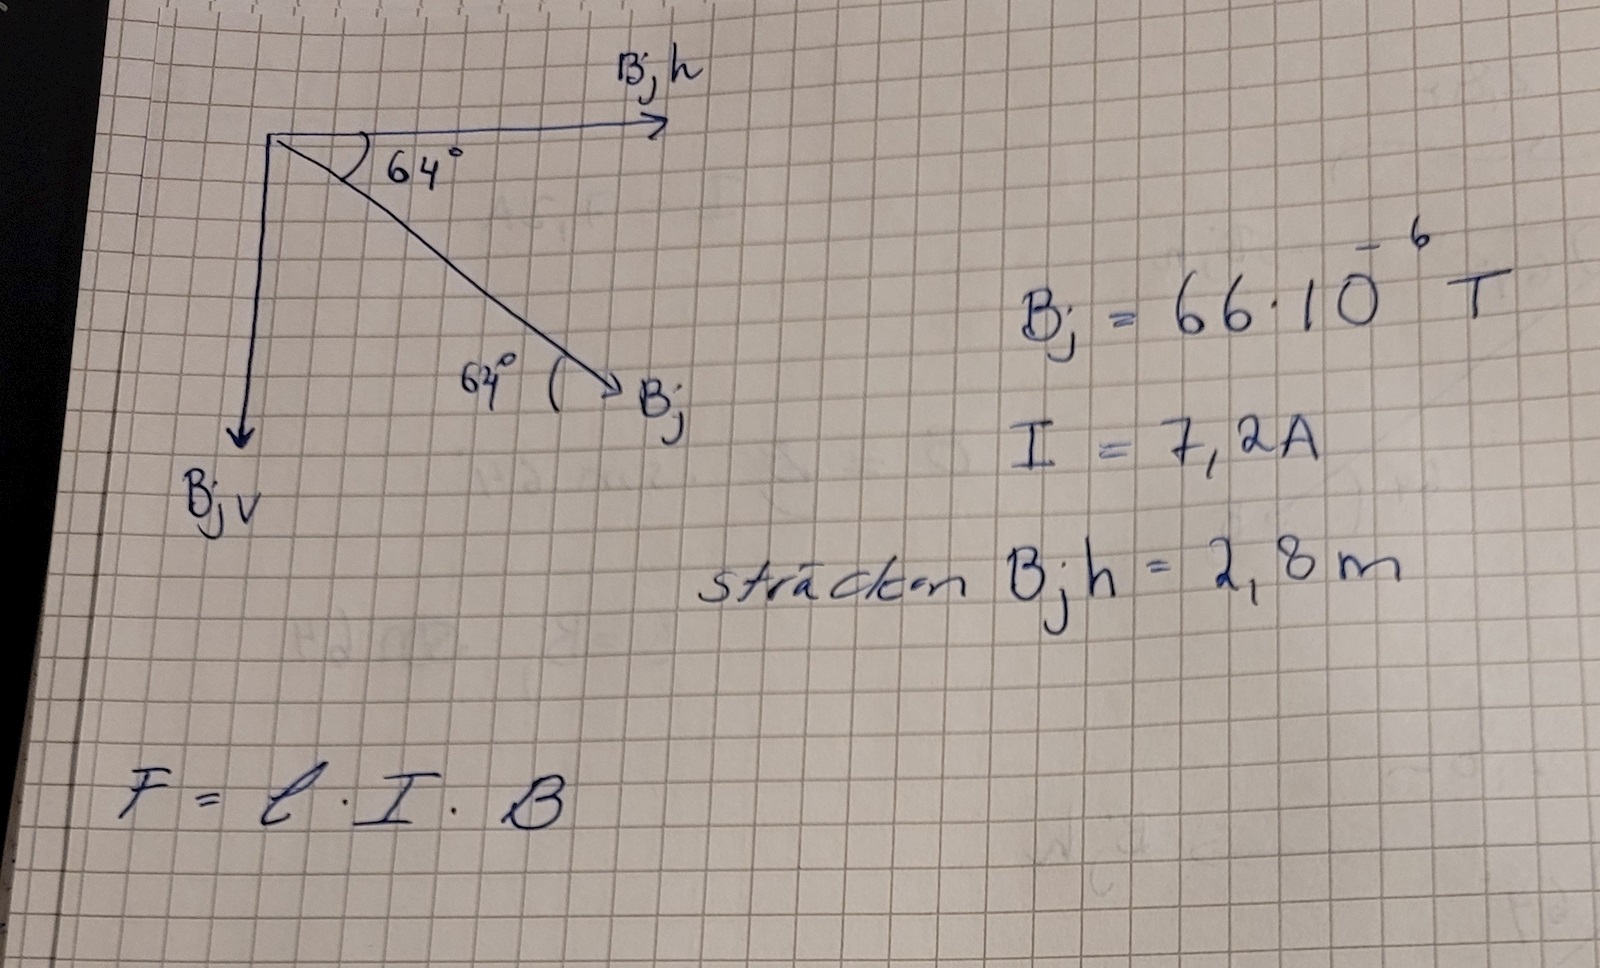 Bj,h
64°
64°
Bj
Bj,v
Bj = 66·10⁻⁶ T
I = 7,2A
sträckan Bj,h = 2,8 m
F = l · I · B